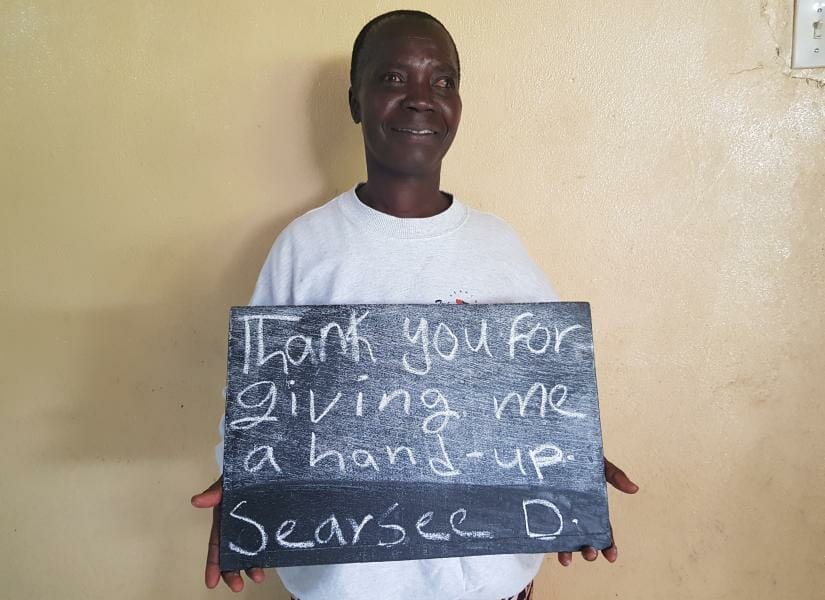 Thank you for
giving me
a hand-up.
Searsee D.